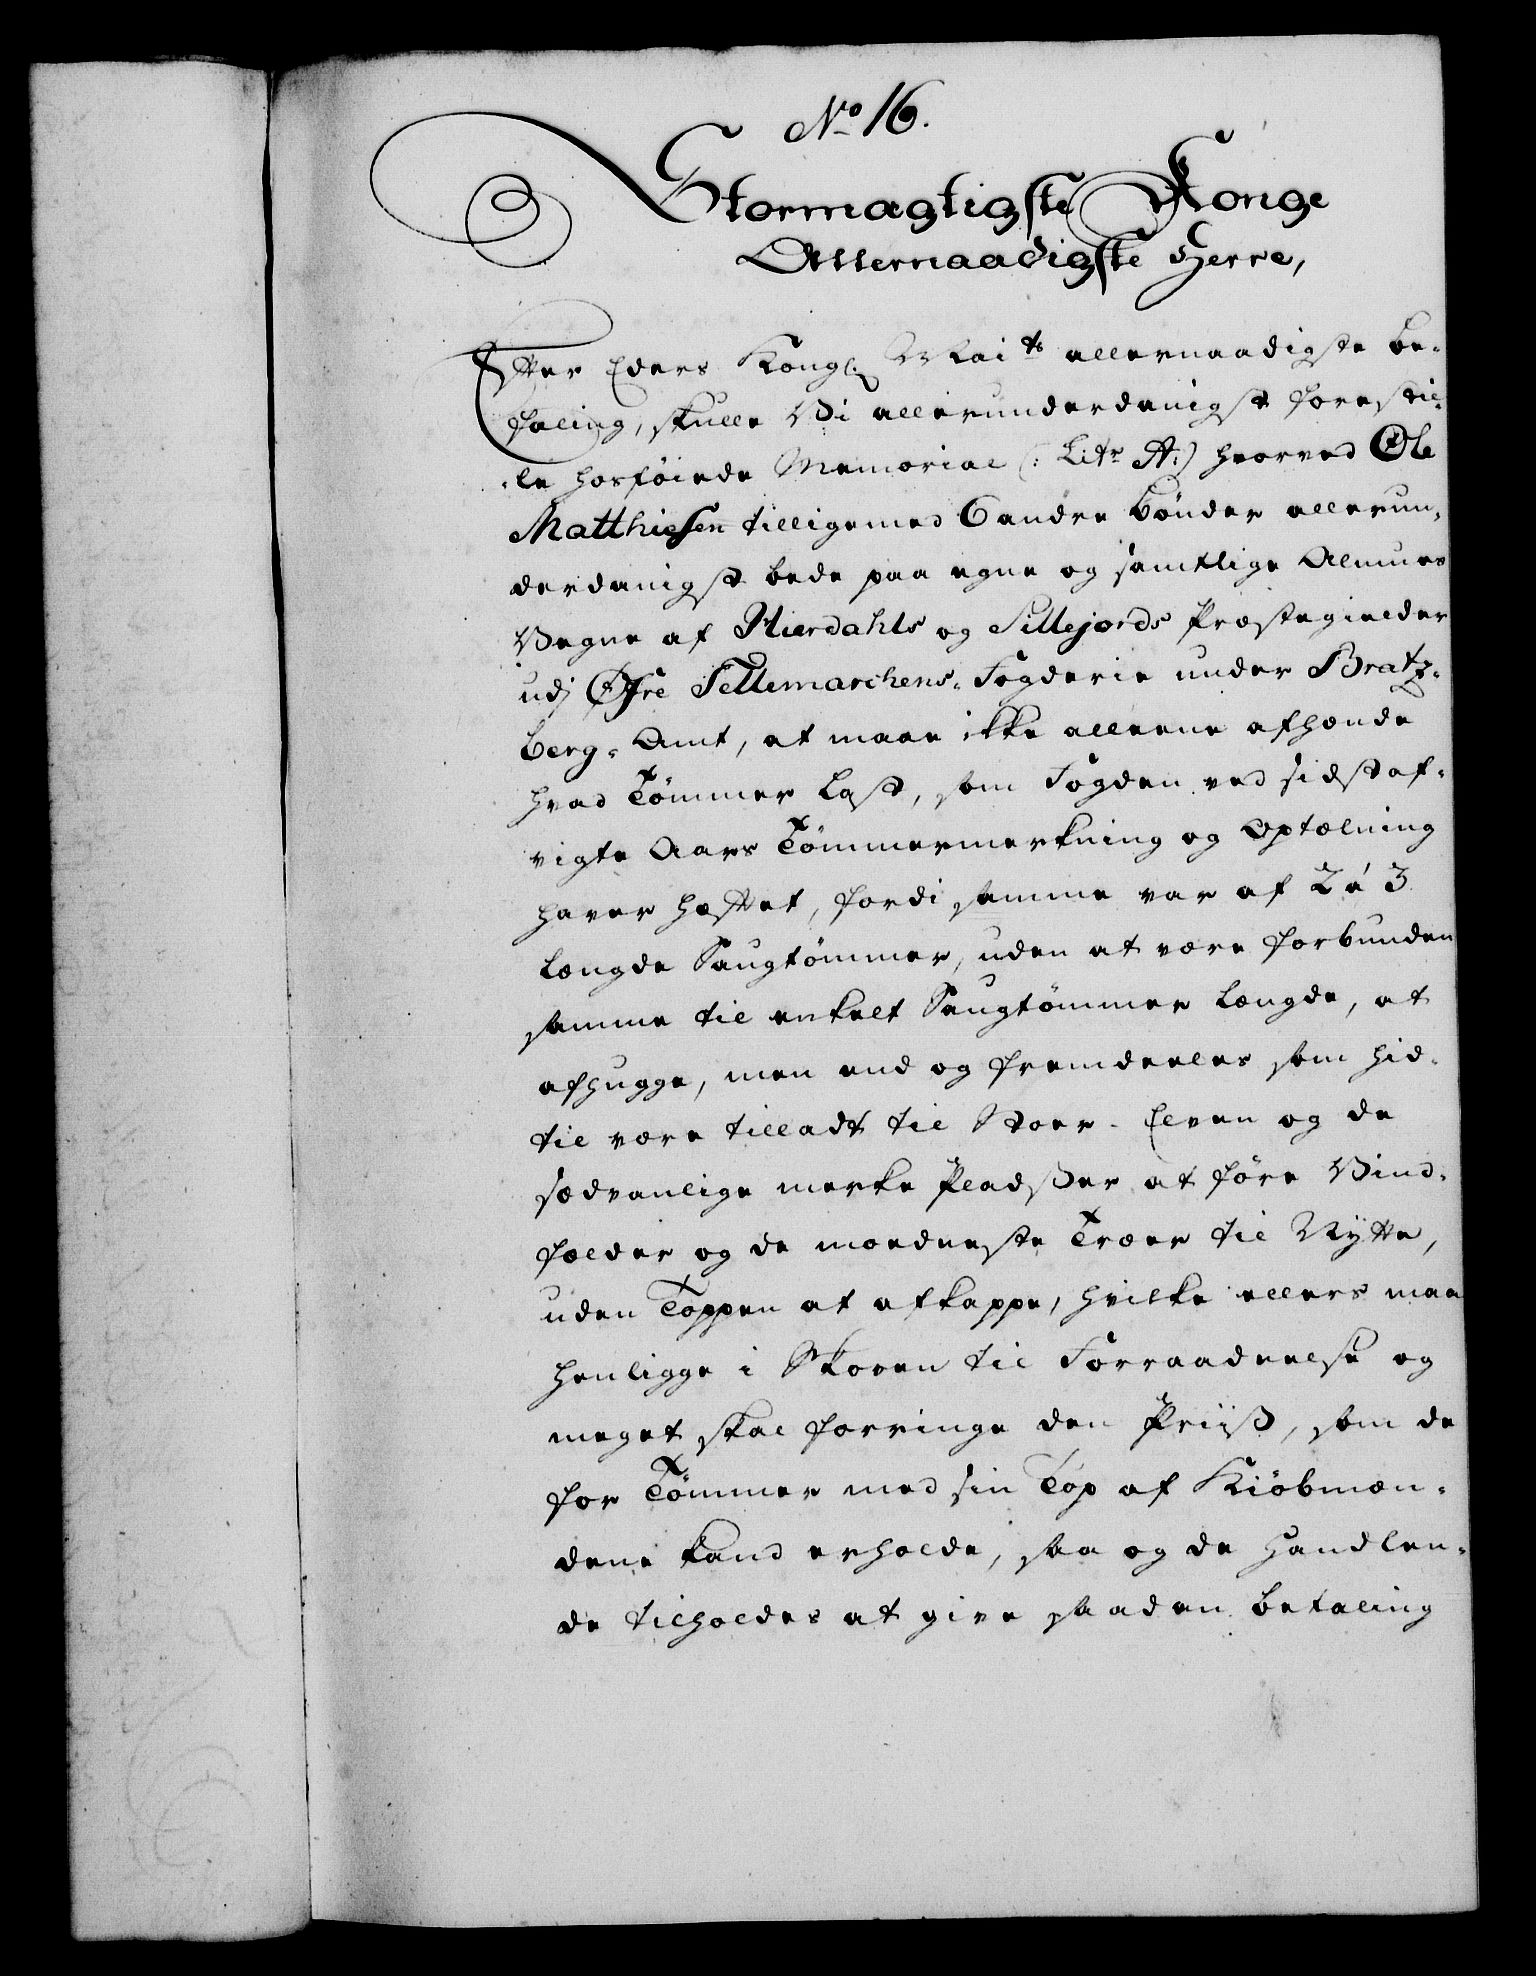 No 16.
Stormægtigste Konge
Allernaadigste Herre,
Efter Eders Kongl: Maits allernaadigste be-
faling, skulle Vi allerunderdanigst forestil-
le hosföiede Memorial (: Litr A:) hvorved Ole
Matthiesen tilligemed 6 andre bönder allerun-
derdanigst bede paa egne og samtlige Almues
Vegne af Hierdahls og Sillejords Præstegielder
udj Öfre Tellemarchens-Fogderie under Bratz-
berg-Amt, at maae ikke alleene afhænde
hvad Tömmer Last, som Fogden ved sidst af-
vigte Aars Tömmermerkning og Optælning
haver hæftet, fordi samme var af 2 á 3
Længde Saugtömmer, uden at være forbunden
samme til enkelt Saugtömmer Længde, at
afhugge, men end og fremdeeles som hid-
til være tilladt til Stoer-Elven og de
sædvanlige merke Pladsser at före Vind-
fælder og de moedneste Træer til Nytte,
uden Toppen at afkappe, hvilke ellers maa
henligge i Skoven til Forraadnelse og
meget skal forringe den Priis, som de
for Tömmer med sin Top af Kiöbmæn-
dene kand erholde, saa og de Handlen-
de tilholdes at give saaden betaling